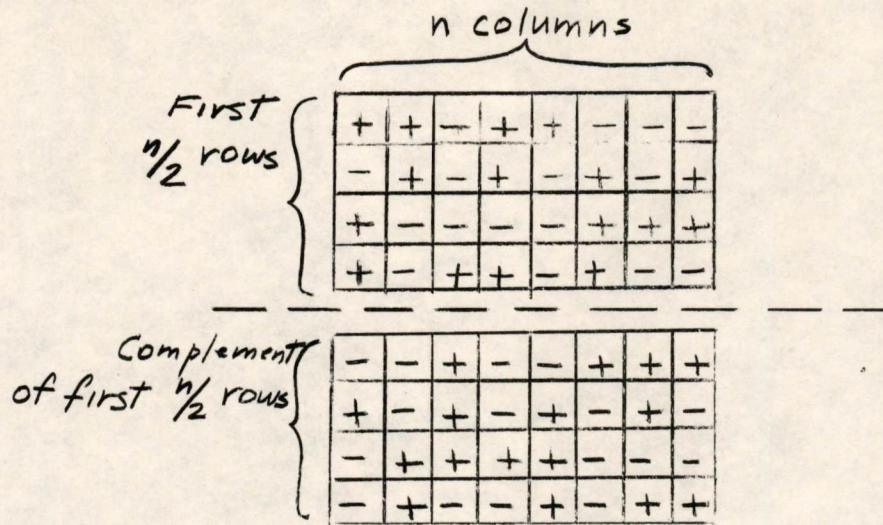 n columns
First
n/2 rows
+ + - + + - - -
- + - + - + - +
+ - - - - + + +
+ - + + - + - -
Complement
of first n/2 rows
- - + - - + + +
+ - + - + - + -
- + + + + - - -
- + - - + - + +